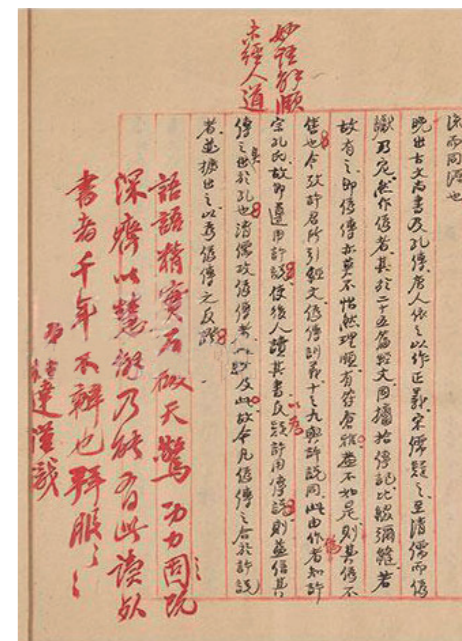 妙語解頤
未經人道
流而同源也
晚出古文尚書及孔傳唐人依之以作正義宋儒疑之至清儒而偽
讞乃定然作偽者其於二十五篇經文固攟拾傳記比綴彌縫若
故有之即偽傳亦莫不怡然理順有符會雅蓋不如是則其偽不
售也今攷許君所引經文偽傳訓義十之九與許說同此由作者知許
宗孔氏故即遵用許說使後人讀其書反疑許用傳說則益信其
傳之出於孔也清儒攻偽傳者尠及此故今凡偽傳之合於許說
者並據出之以為偽傳之反證
語語精實石破天驚功力固既
深齊以慧解乃能有此讀然
書者千年不辨也拜服拜服
達謹識